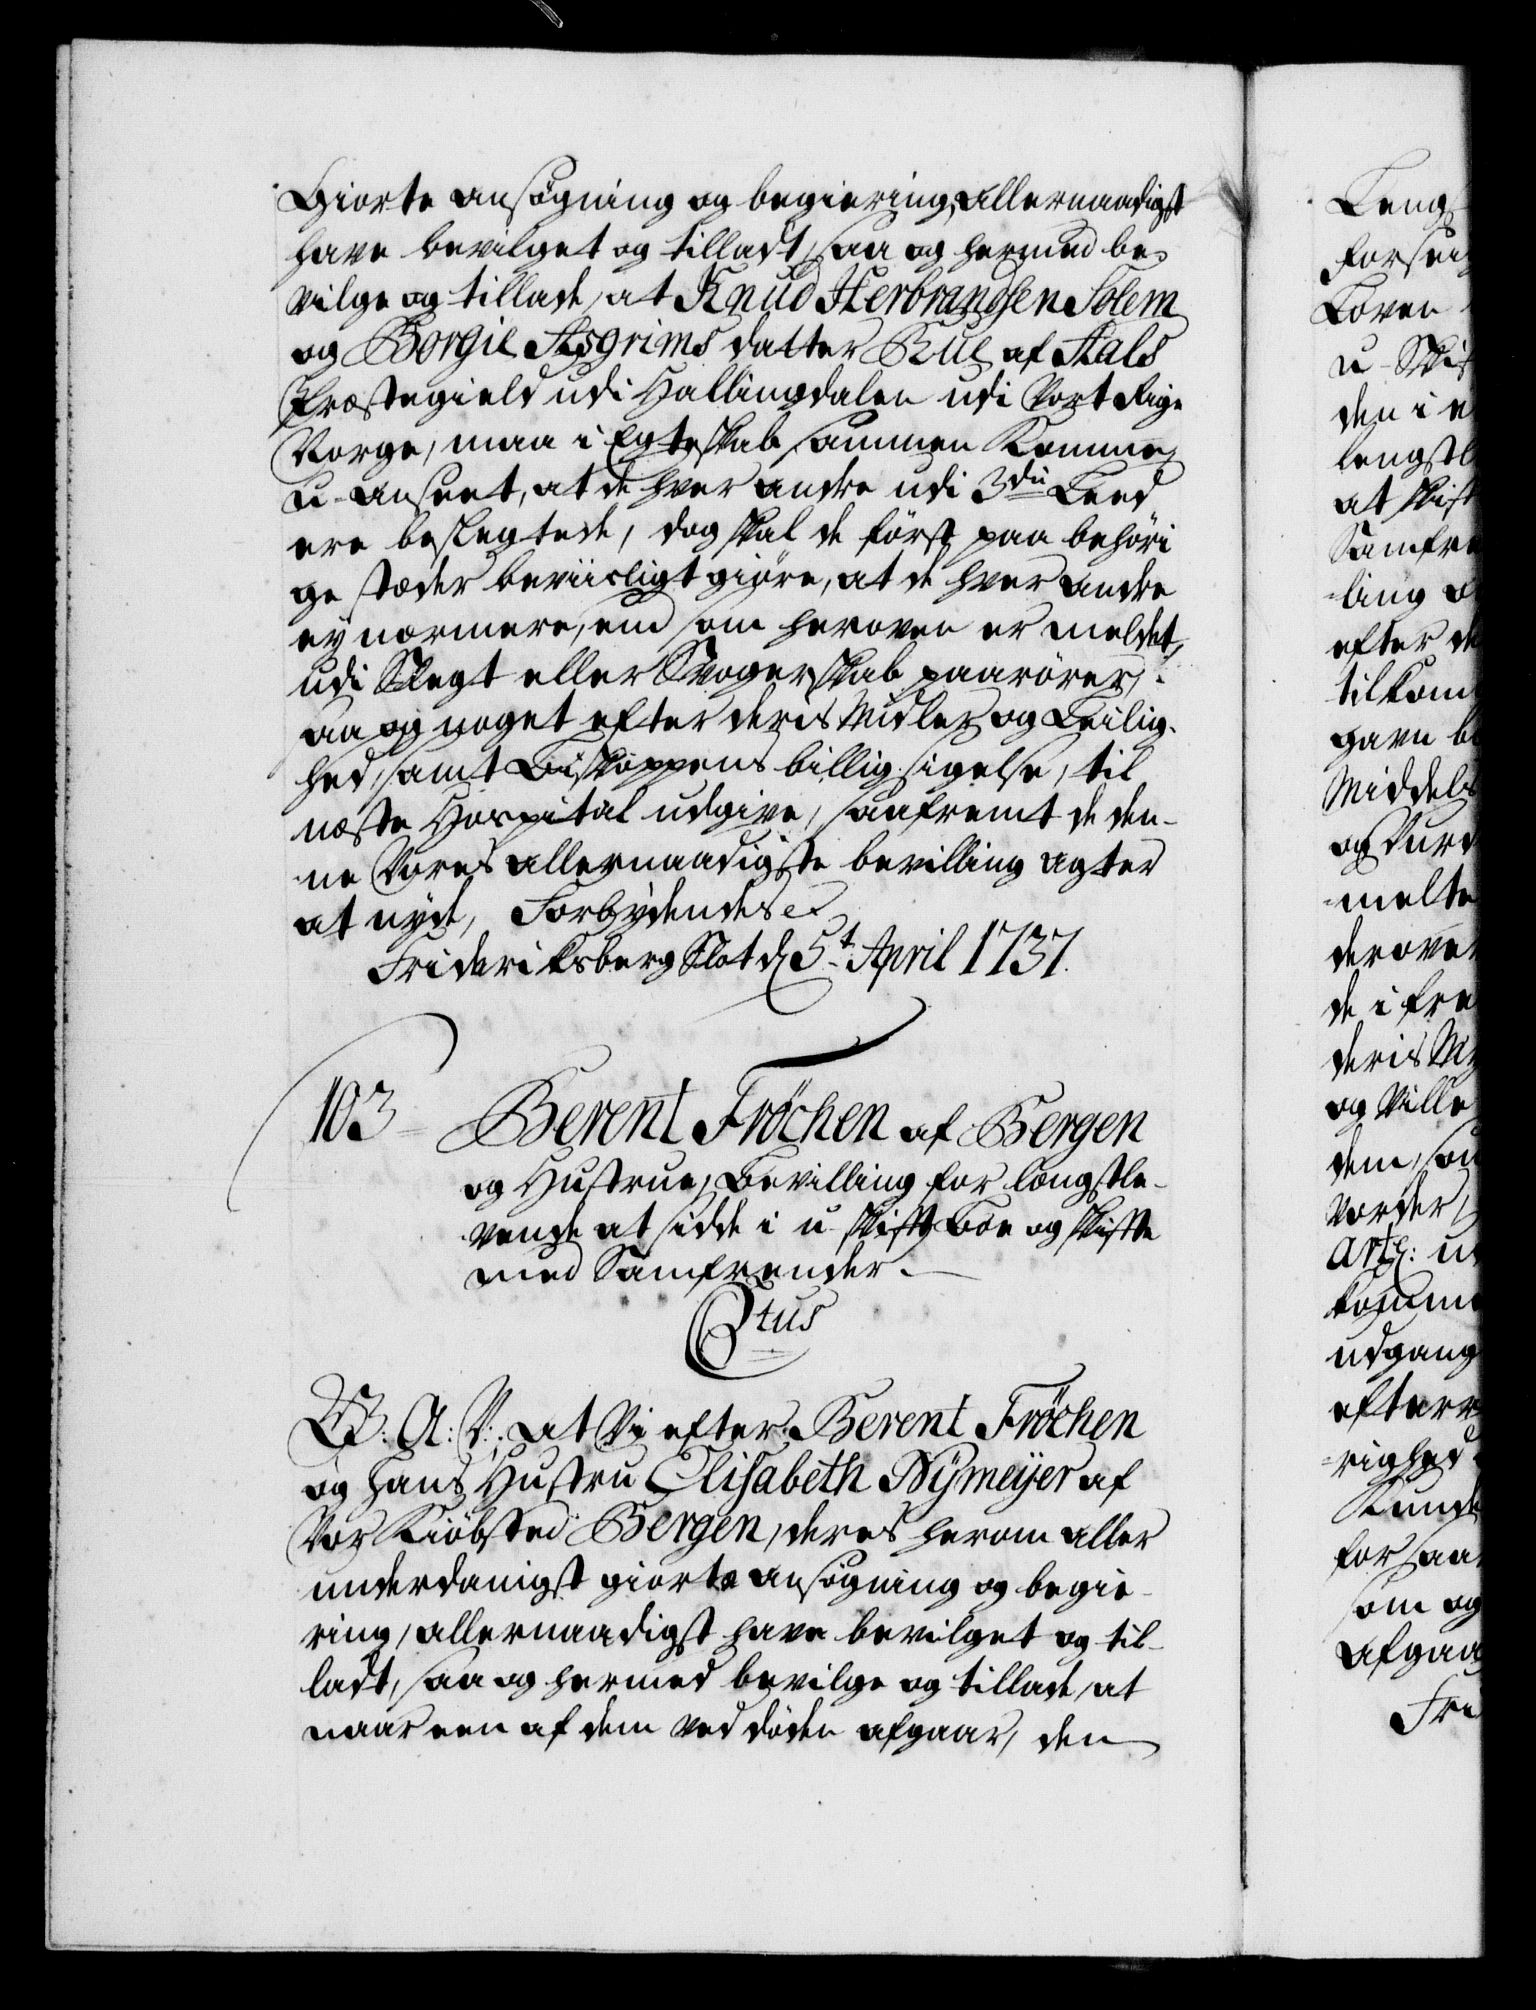 Giorte ansøgning og begiering, allernaadigst
have bevilget og tilladt, saa og hermed be-
vilge og tillade, at Knud Herbrandsen Solem
og Borgil Asgrims datter Rue af Aals
Præstegield udi Hallingdalen udi Vort Rige
Norge, maa i Egteskab sammen komme,
u-anseet, at de hver andre udi 3die Leed
ere beslegtede, dog skal de først paa behøri
ge stæder beviisligt giøre, at de hver andre
ey nærmere, end som heroven er meldet,
udi Slegt eller Svogerskab paarører,
saa og noget efter deris Midler og Leilig-
hed, samt Biskoppens billig sigelse, til
næste Hospital udgive, saafremt de den-
ne Vores allernaadigste bevilling agter
at nyde, Forbydendes etc.
Friderichsberg Slot d. 5t. April 1737.
103 Berent Fröchen af Bergen
og Hustrue, Bevilling for længstle-
vende at sidde i u-skift Boe og skifte
med Samfrender.
Ctus
G: A: V: at Vi efter Berent Fröchen
og hans Hustru Elisabeth Nÿmeÿer af
Vor Kiøbsted Bergen, deres herom aller
underdanigst giorte ansøgning og begie-
ring, allernaadigst have bevilget og til-
ladt, saa og hermed bevilge og tillade, at
naar een af dem ved døden afgaar, den
Leng
forsei
Loven
u-Ski
den i e
lengstl
at skift
Samfre
ling o
efter de
tilkom
gavn b
Middels
og Vurd
melte
derove
de i fre
deris M
og Ville
dem, som
vorder
Art: u
komme
udgang
efterr
righed
Kunde
for saa
som og
afgaa
Fri